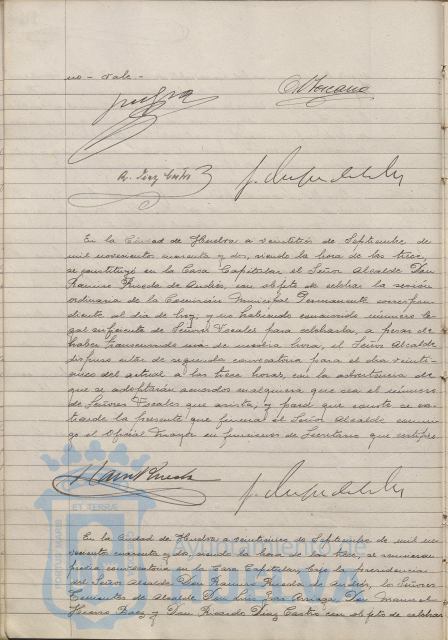 no - vale -
A. Díaz Castro
En la Ciudad de Huelva a veintitrés de Septiembre de
mil novecientos cuarenta y dos, siendo la hora de las trece,
se constituyó en la Casa Capitular, el Señor Alcalde Don
Ramiro Rueda de Andrés, con objeto de celebrar la sesión
ordinaria de la Comisión Municipal Permanente correspon-
diente al día de hoy, y no habiendo concurrido número le-
gal suficiente de Señores Vocales para celebrarla, a pesar de
haber transcurrido más de media hora, el Señor Alcalde
dispuso citar de segunda convocatoria para el día veinti-
cinco del actual a las trece horas, con la advertencia de
que se adoptarán acuerdos cualquiera que sea el número
de Señores Vocales que asista, y para que conste se ex-
tiende la presente que firma el Señor Alcalde conmi-
go el Oficial Mayor en funciones de Secretario que certifico.
ET TERRAE
Ayuntamiento de
En la Ciudad de Huelva a veinticinco de Septiembre de mil no-
vecientos cuarenta y dos, siendo la hora de las trece, se reunieron
previa convocatoria en la Casa Capitular, bajo la presidencia
del Señor Alcalde Don Ramiro Rueda de Andrés, los Señores
Tenientes de Alcalde Don Luis Arriaga, Don Manuel
Báez y Don Ricardo Díaz Castro con objeto de celebrar